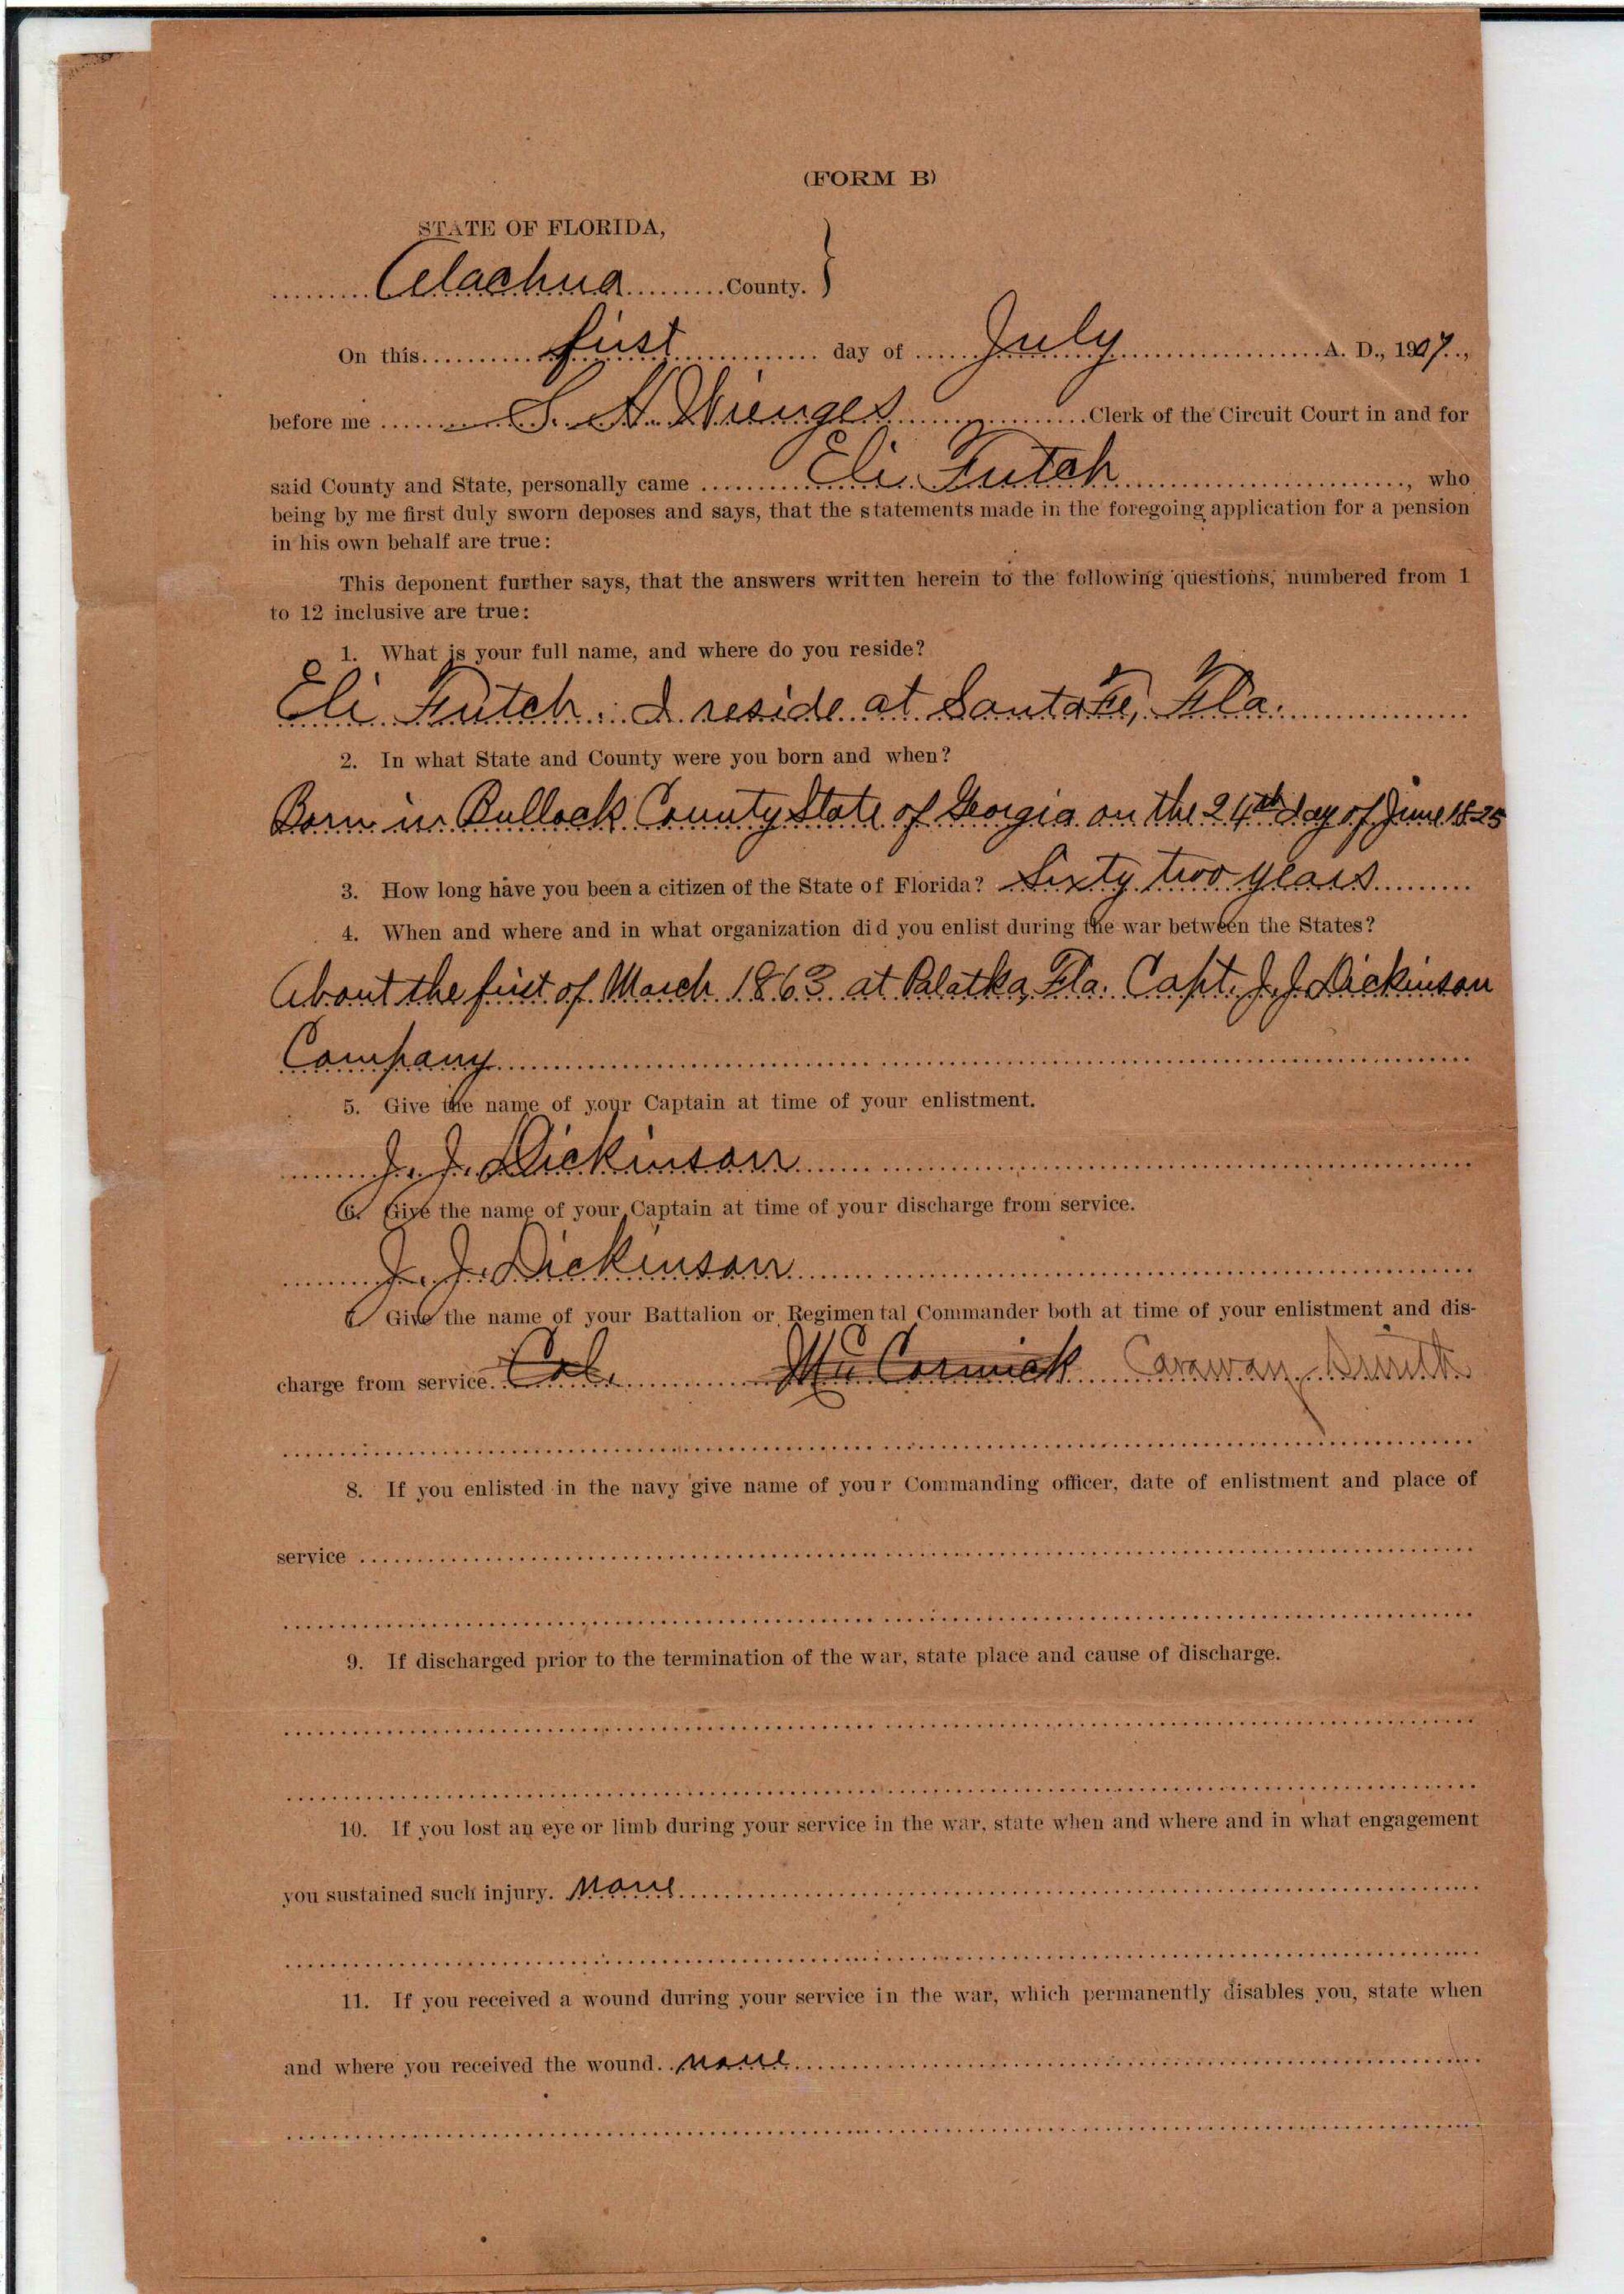 (FORM B)
STATE OF FLORIDA,
Alachua County. }
On this first day of July A. D., 1907.,
before me S. H. Wienges Clerk of the Circuit Court in and for
said County and State, personally came Eli Futch, who
being by me first duly sworn deposes and says, that the statements made in the foregoing application for a pension
in his own behalf are true:
This deponent further says, that the answers written herein to the following questions, numbered from 1
to 12 inclusive are true:
1. What is your full name, and where do you reside?
Eli Futch. I reside at Santa Fe, Fla.
2. In what State and County were you born and when?
Born in Bullock County State of Georgia on the 24th day of June 1825
3. How long have you been a citizen of the State of Florida? Sixty two years
4. When and where and in what organization did you enlist during the war between the States?
About the first of March 1863 at Palatka, Fla. Capt. J. J. Dickinson
Company
5. Give the name of your Captain at time of your enlistment.
J. J. Dickinson
6. Give the name of your Captain at time of your discharge from service.
J. J. Dickinson
7 Give the name of your Battalion or Regimental Commander both at time of your enlistment and dis-
charge from service. Col. McCormick Carawan Smith
8. If you enlisted in the navy give name of your Commanding officer, date of enlistment and place of
service
9. If discharged prior to the termination of the war, state place and cause of discharge.
10. If you lost an eye or limb during your service in the war, state when and where and in what engagement
you sustained such injury. None
11. If you received a wound during your service in the war, which permanently disables you, state when
and where you received the wound. none